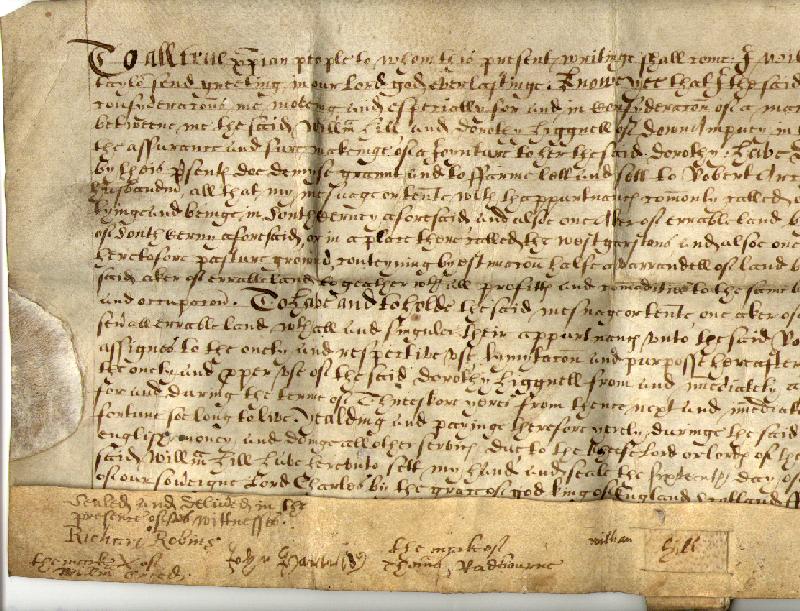 To all true xpian people to whom this present writinge shall come I Will
taylor send greeting in our lord god everlastinge. Knowe yee that I the said
consyderacons me moveing and especially for and in consyderacon of a mar
betweene me the said Willm Hill and Dorothy Higgnell of Downe
the assurance and sure makeinge of a Joynture to her the said dorothy. Have
by theis psents doe demyse graunt and to ffarme lett and sell to Robert
husbandm all that my mesuage or tente with thappurtnances comonly called
lyinge and beinge in South Cerney aforesaid and alsoe one aker of errable land
of South Cerny aforesaid in a place there called the west garstons and alsoe one
heretofore pasture ground conteyning by estimacon halfe a of land
said aker of errable land to geather wth all proffitts and comodities to the same
and occupacon. To have and to holde the said mesuage or tente one aker of
sevall errable land wth all and singuler their appurtnancs unto the said Ro
assignes to the onely and respective use lymytacon and purpose hereafter
the onely and pper use of the said dorothy Higgnell from and imediately
for and dureing the terme of Threescore yeres from thence next and imediat
fortune soe long to live Yealding and paying therefore yerely dureinge the said
english money and doinge all other servics due to the cheife Lord or lords of the
said Willm Hill have hereunto sett my hand and seale the sixteenth day of
of our soveigne Lord Charles by the grace of god king of England Scotland
Sealed and delived in the
presence of us wittnesses.
Richard Robins
John the marke of Thoms Radbourne
the marke X of
Willm
William Hill